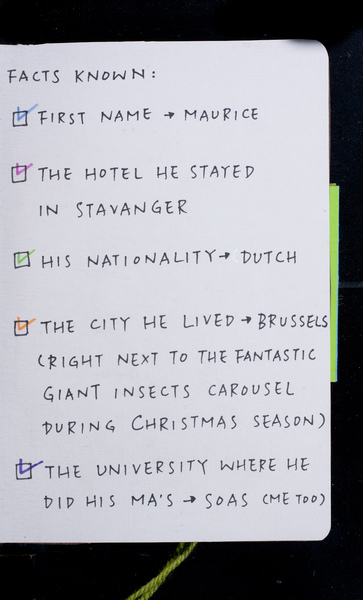 FACTS KNOWN:
FIRST NAME → MAURICE
THE HOTEL HE STAYED
IN STAVANGER
HIS NATIONALITY → DUTCH
THE CITY HE LIVED → BRUSSELS
(RIGHT NEXT TO THE FANTASTIC
GIANT INSECTS CAROUSEL
DURING CHRISTMAS SEASON)
THE UNIVERSITY WHERE HE
DID HIS MA'S → SOAS (ME TOO)